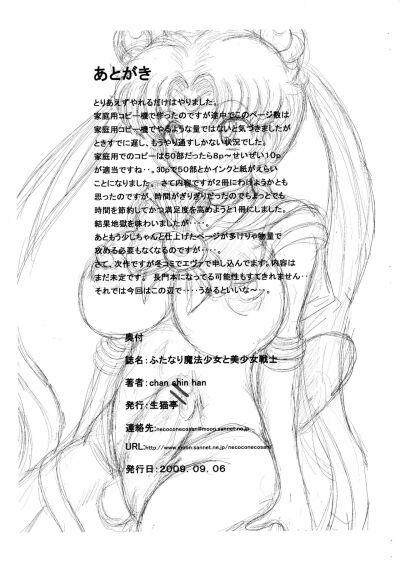 あとがき
とりあえずやれるだけはやりました。
家庭用コピー機で作ったのですが途中でこのページ数は
家庭用コピー機でやるような量ではないと気づきましたが
ときすでに遅し、もうやり通すしかない状況でした。
家庭用でのコピーは50部だったら8p～せいぜい10p
が適当ですね‥。30pで50部とかインクと紙がえらい
ことになりました。 さて内容ですが2冊にわけようかとも
思ったのですが、時間がぎりぎりだったのでちょっとでも
時間を節約してかつ満足度を高めようと1冊にしました。
結果地獄を味わいましたが‥‥。
あともう少しちゃんと仕上げたページが多けりゃ物量で
攻める必要もなくなるのですが‥‥。
さて、次作ですが冬コミでエヴァで申し込んでます。内容は
まだ未定です。 長門本になってる可能性もすてきれません‥‥
それでは今回はこの辺で‥‥うかるといいな～‥。
奥付
誌名：ふたなり魔法少女と美少女戦士
著者：chan shin han
発行：生猫亭
連絡先:necoconecosan@moon.sannet.ne.jp
URL:http://www.moon.sannet.ne.jp/necoconecosan/
発行日：2009．09．06